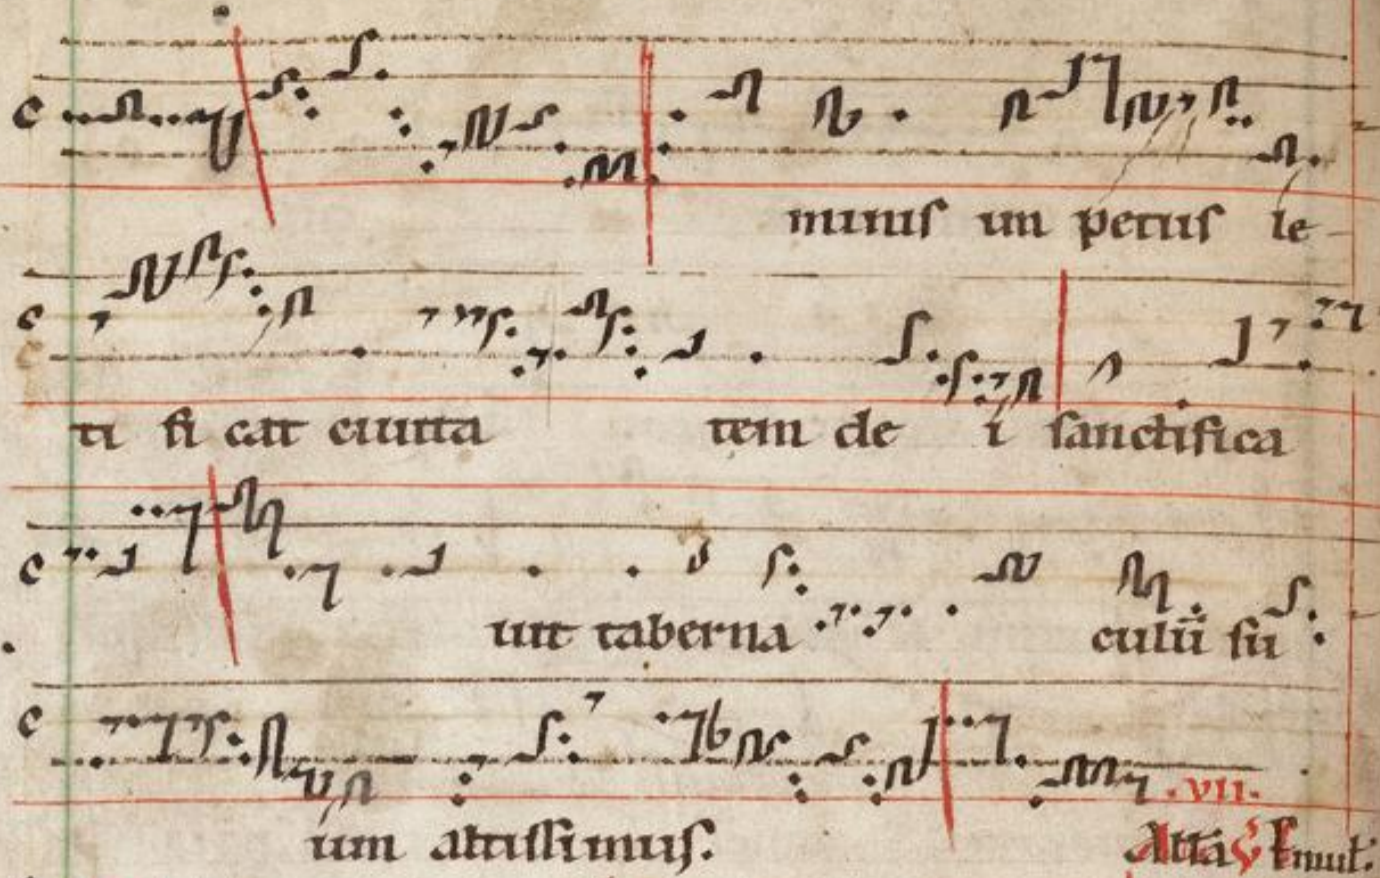 minis im petus le-
ti fi cat ciuita tem de i sanctifica
uit taberna culū su
um altissimus. .vii. Alla V Emul.